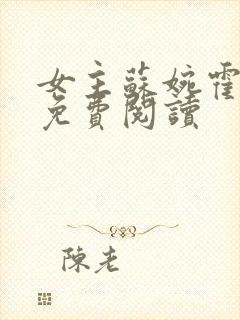 女主蘇婉霍
免費閱讀
陳老